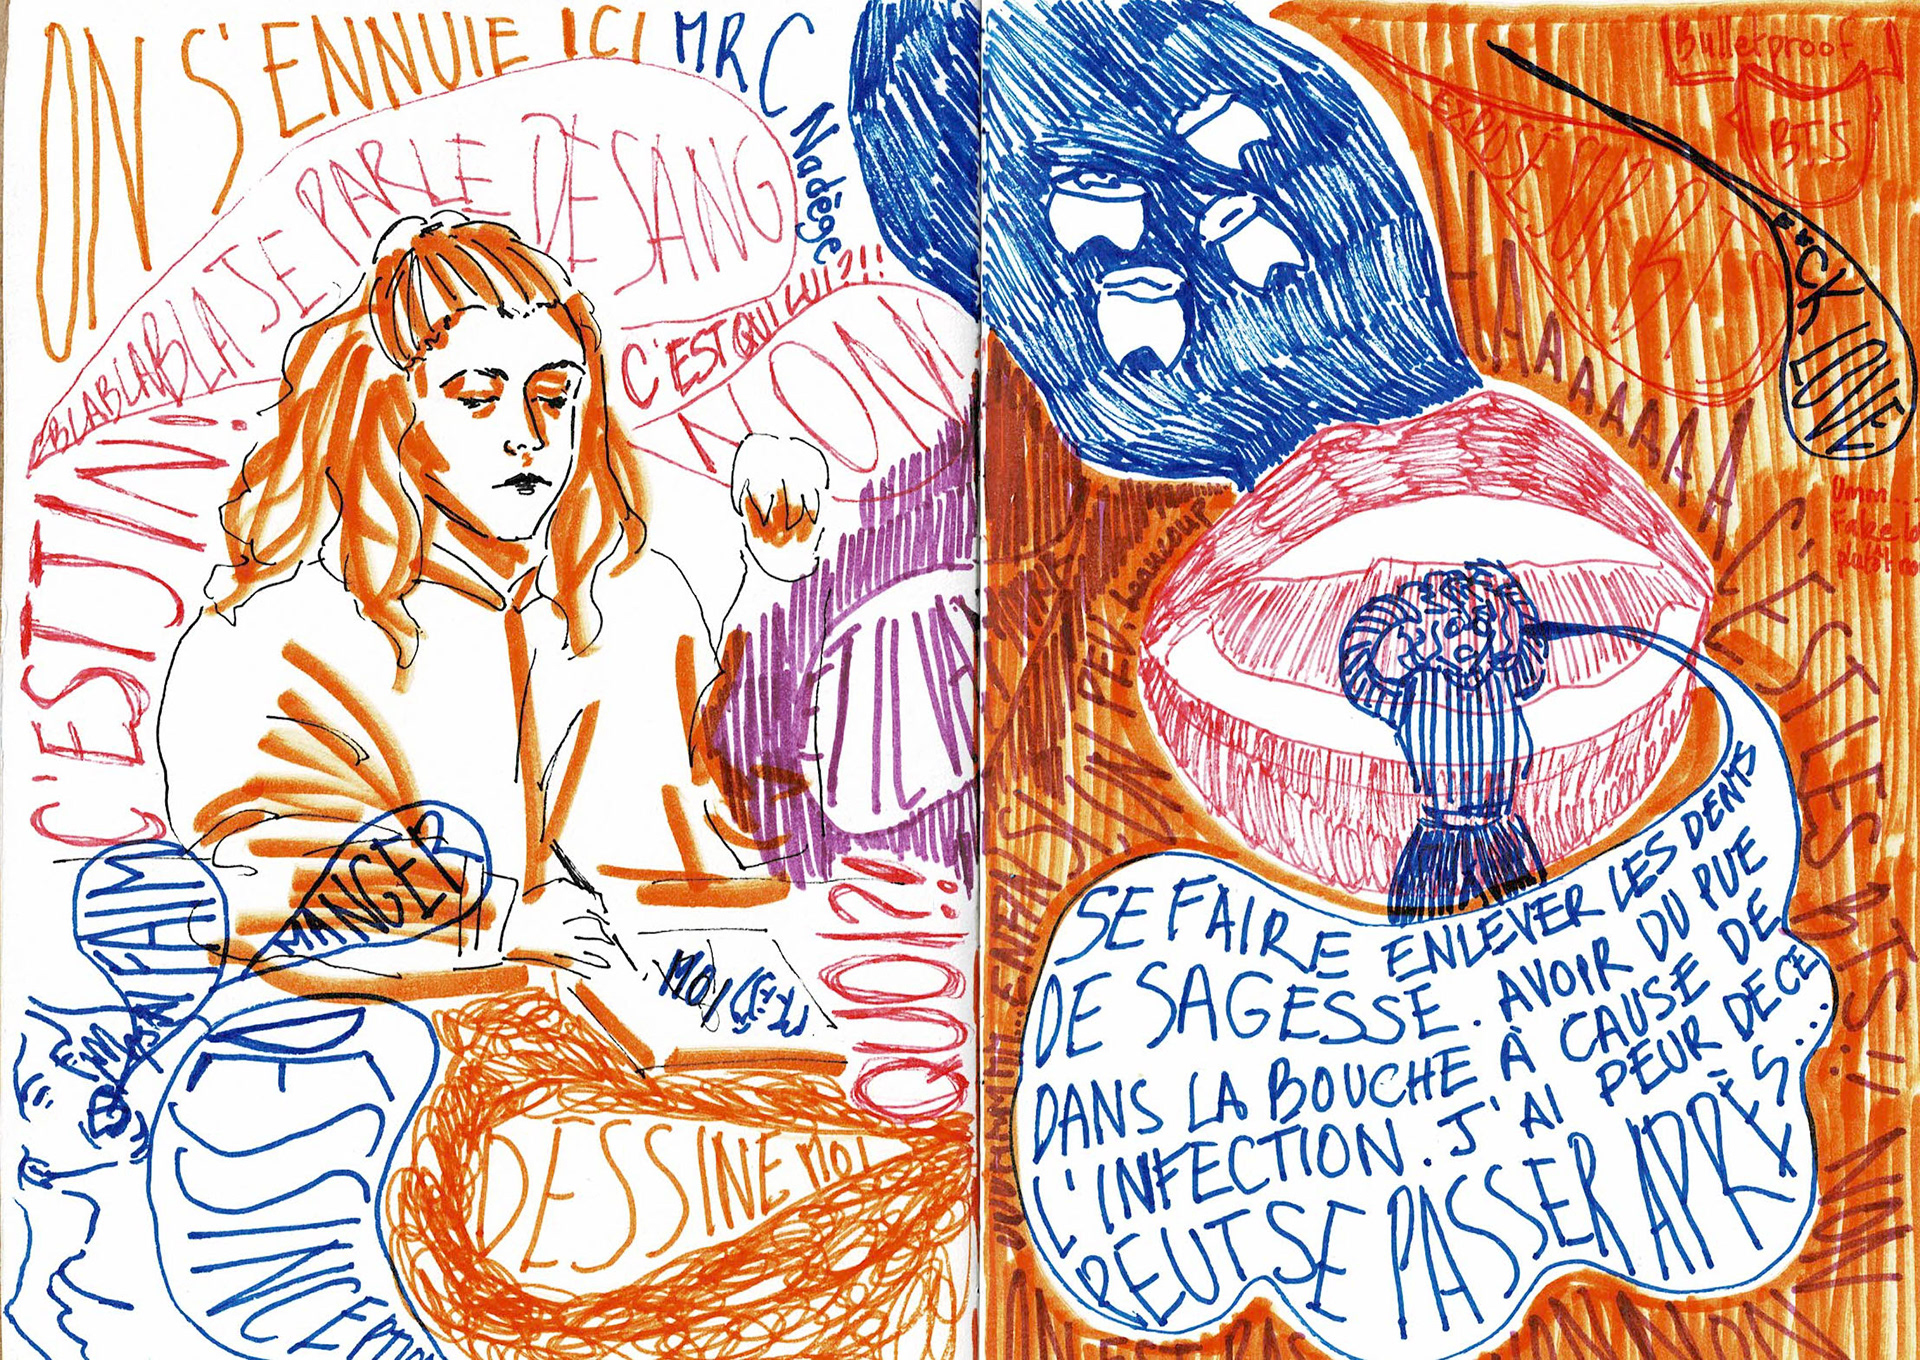 ON S'ENNUIE ICI
MRC Nadège
BLABLABLABLA JE PARLE DE SANG
C'EST QUI LUI?!!
NON
C'EST JIN!
ET IL VA
MANGER
FAIM
MOI
QUOI?!
DESSINE MOI
C'EST
INCEPTION
Bulletproof
BTS
EXPOSÉ SUR BTS
HAAAAAAAAA C'EST LES BTS!! NON
F*CK LOVE
Umm...
Fake
plutôt
ENFIN SI, UN PEU. beaucoup
SE FAIRE ENLEVER LES DENTS
DE SAGESSE. AVOIR DU PUE
DANS LA BOUCHE À CAUSE DE
L'INFECTION. J'AI PEUR DE CE
PEUT SE PASSER APRÈS...
EST PAS
NON NON